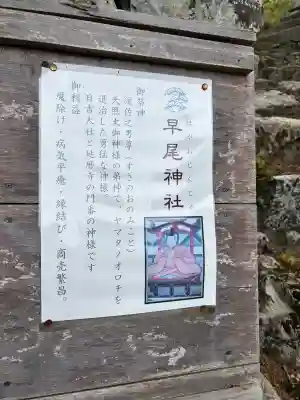 はやおじんじゃ
早尾神社
御祭神
須佐之男尊(すさのおのみこと)
天照大御神様の弟神で、ヤマタノオロチを
退治した勇猛な神様。
日吉大社と延暦寺の門番の神様です
御利益
魔除け・病気平癒・縁結び・商売繁昌。